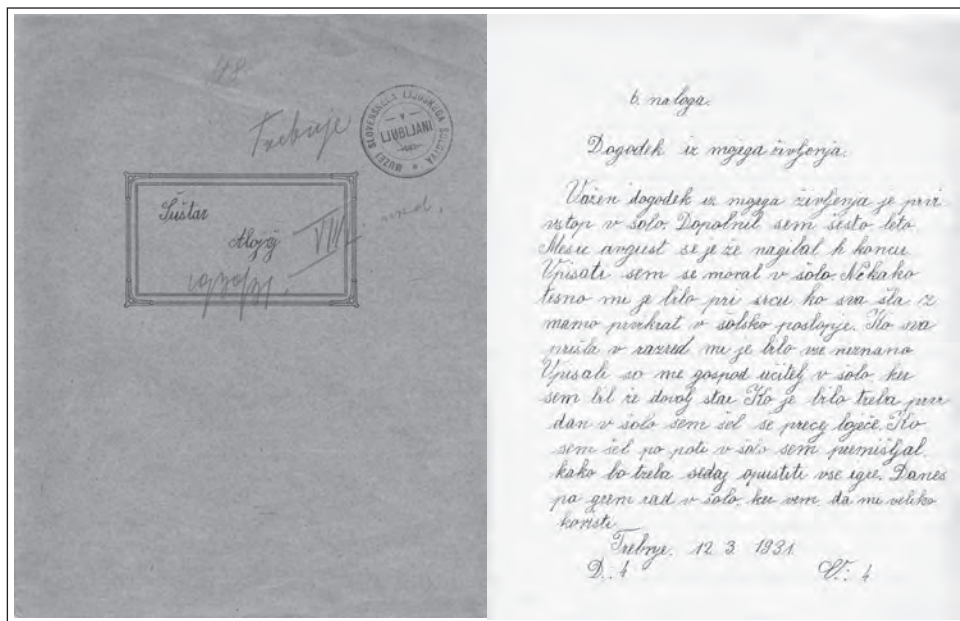 48.
Trebnje
MUZEJ SLOVENSKEGA LJUDSKEGA ŠOLSTVA
V
LJUBLJANI
Šuštar
Alojzij
VIII
6. naloga.
Dogodek iz mojega življenja.
Važen dogodek iz mojega življenja je prvi
vstop v šolo. Dopolnil sem šesto leto.
Mesec avgust se je že nagibal h koncu.
Vpisati sem se moral v šolo. Nekako
tesno mi je bilo pri srcu ko sva šla z
mamo prvikrat v šolsko poslopje. Ko sva
prišla v razred mi je bilo vse neznano.
Vpisali so me gospod učitelj v šolo ker
sem bil že dovolj star. Ko je bilo treba prvi
dan v šolo sem šel še precej boječe. Ko
sem šel po poti v šolo sem premišljal
kako bo treba sedaj opustiti vse igre. Danes
pa grem rad v šolo, ker vem, da mi veliko
koristi.
Trebnje. 12. 3. 1931
D.: 4
V.: 4